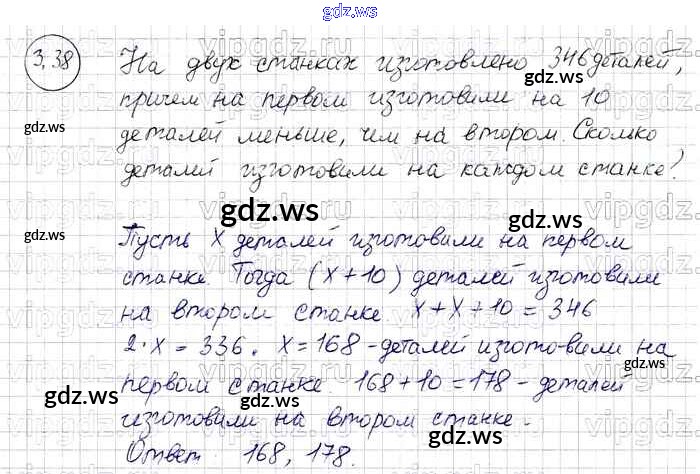 gdz.ws
3.38 На двух станках изготовлено 346 деталей,
причем на первом изготовили на 10
gdz.ws
gdz.ws
деталей меньше, чем на втором. Сколько
деталей изготовили на каждом станке?
gdz.ws
Пусть х деталей изготовили на первом
gdz.ws
gdz.ws
станке. Тогда (х+10) деталей изготовили
на втором станке. х+х+10=346
2·х=336. х=168-деталей изготовили на
gdz.ws
первом станке. 168+10=178-деталей
gdz.ws
изготовили на втором станке.
gdz.ws
Ответ 168, 178.
gdz.ws